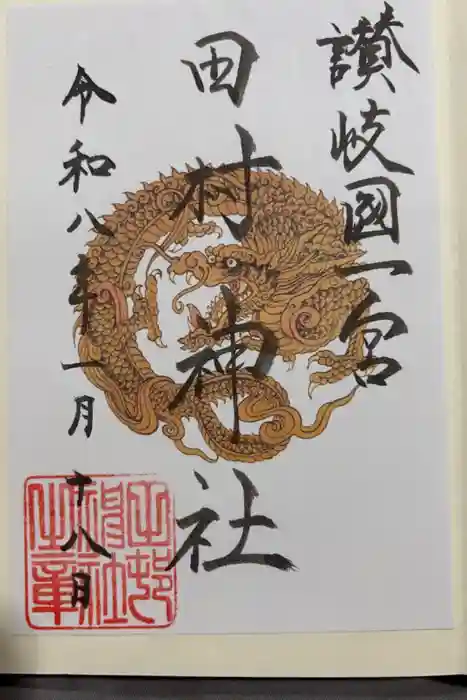 讃岐國一宮
田村神社
令和八年一月十八日
田村神社之章